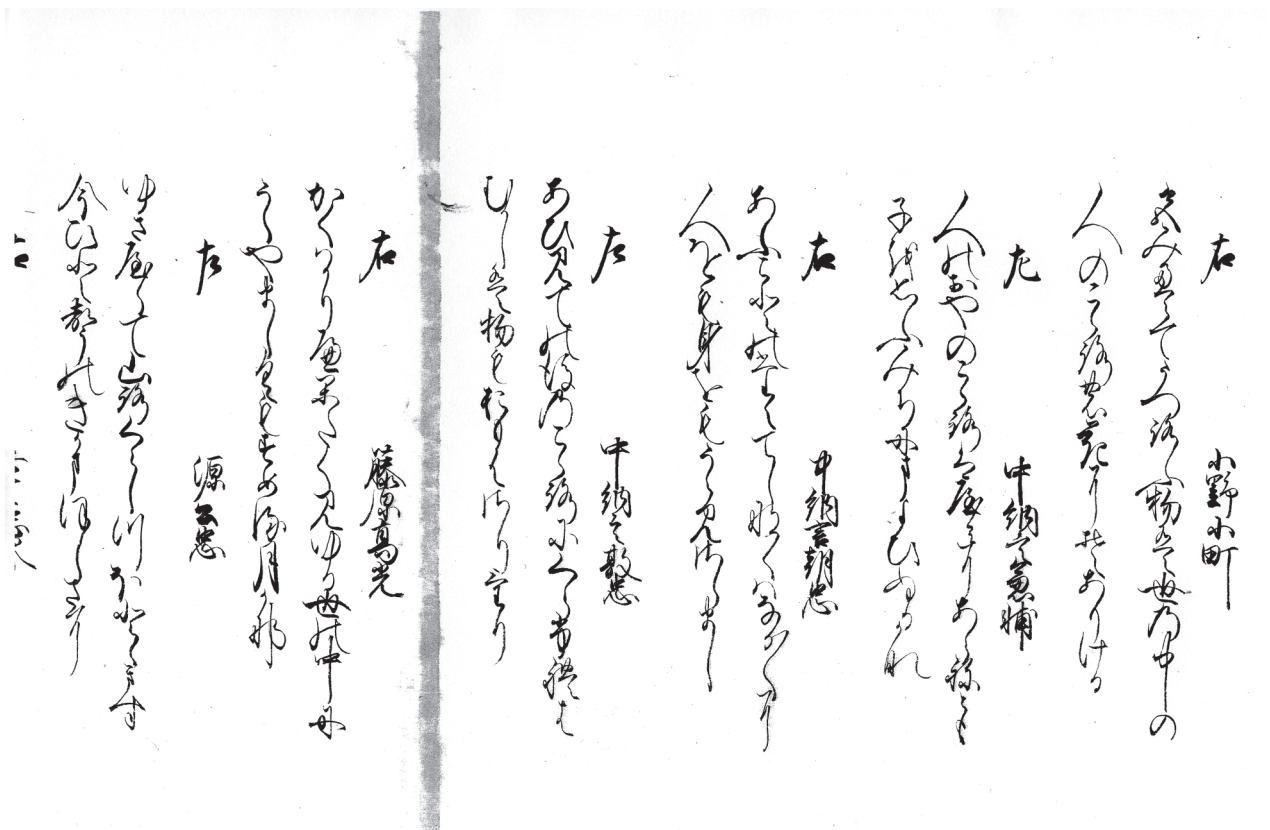 右 小野小町
色みえてうつろふ物は世乃中の
人のこゝろの花にそありける
左 中納言兼輔
人のおやのこゝろはやみにあらねとも
子をおもふみちにまよひぬるかな
右 中納言朝忠
あふことのたえてしなくはなか〱に
人をも身をもうらみさらまし
左 中納言敦忠
あひ見ての後乃こゝろにくらふれは
むかしは物もおもはさりけり
右 藤原高光
かくはかりへかたく見ゆる世の中に
うらやましくもすめる月かな
左 源公忠
ゆきやらて山路くらしつほとゝきす
今ひとこゑのきかまほしさに
右